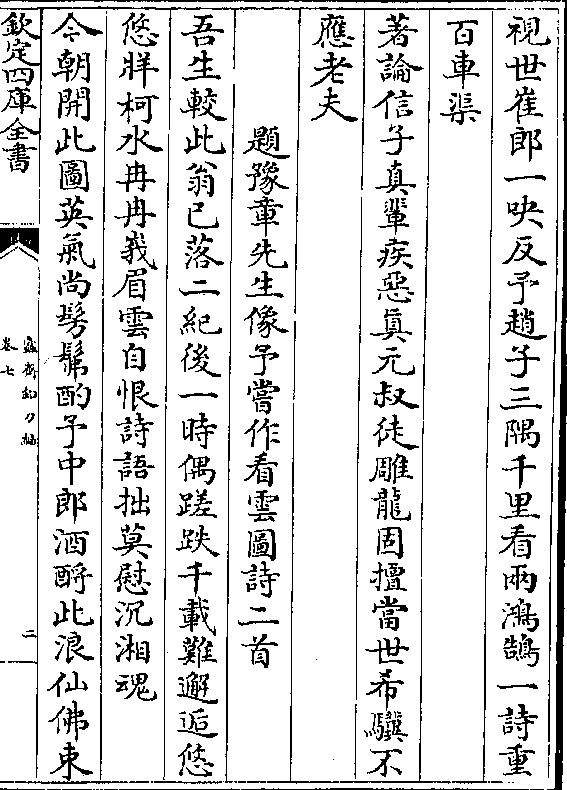 視世崔郎一吷反予趙子三隅千里看兩鴻鵠一詩重
百車渠
著論信子真輩疾惡真元叔徒雕龍固擅當世希驥不
應老夫
題豫章先生像予嘗作看雲圖詩二首
吾生較此翁已落二紀後一時偶蹉跌千載難邂逅悠
悠牂柯水冉冉峩眉雲自恨詩語拙莫慰沉湘魂
今朝開此圖英氣尚髣髴酌予中郎酒酹此浪仙佛東
欽定四庫全書
卷七
二